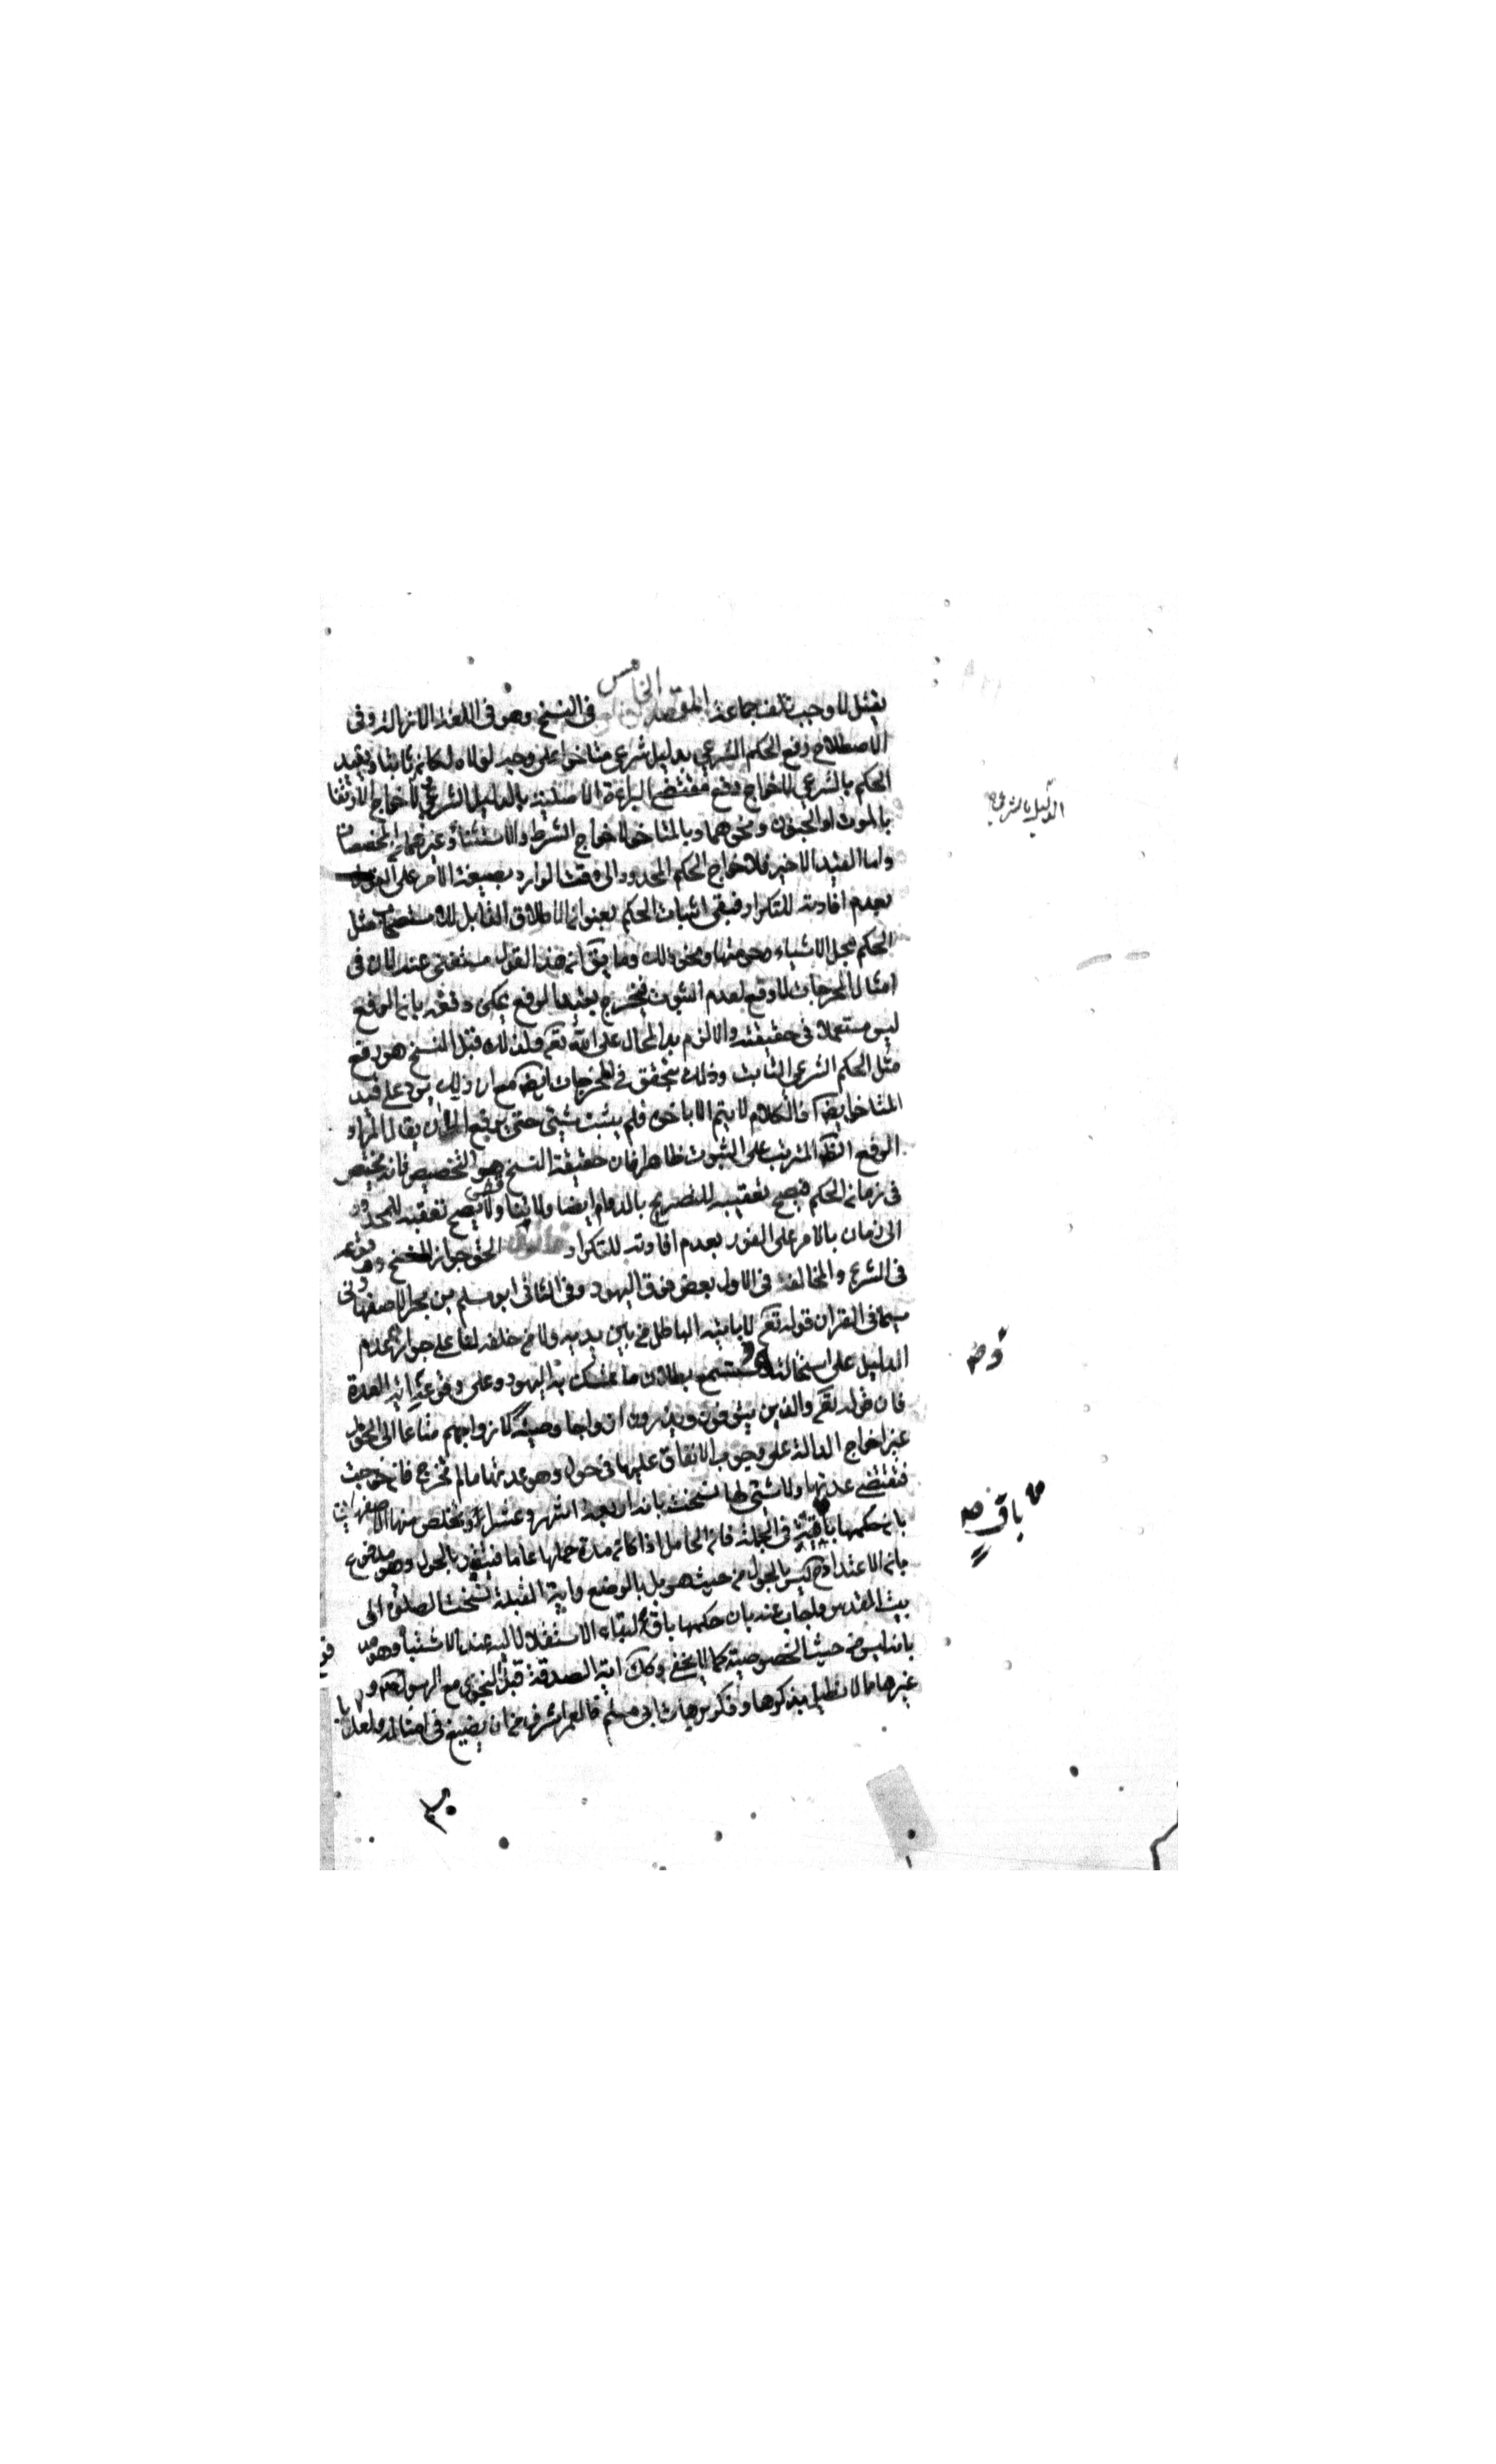 يفتش لا وجب تلف جماعة المقصد الخامس في النسخ وهو في اللغة الازالة وفي
الاصطلاح رفع الحكم الشرعي بدليل شرعي متاخر على وجه لولاه لكان ثابتا وتقييد
الحكم بالشرعي لاخراج رفع مقتضى البراءة الاصلية بالدليل الشرعي لاخراج الارتفاع
بالموت او الجنون ونحوهما وبالمتاخر لاخراج الشرط والاستثناء وغيرهما من المخصصات
واما القيد الاخير فلاخراج الحكم المحدود الى وقت الوارد بصيغة الامر على القول
بعدم افادته للتكرار فبقي اثبات الحكم بعنوان الاطلاق القابل للاستمرار مثل
الحكم بحل الاشياء وحرمتها ونحو ذلك وما يق ان هذا القول مستغنى عنه لان في
امثال المخرجات لا رفع لعدم الثبوت فيخرج بقيد الرفع يمكن دفعه بان الرفع
ليس مستعملا في حقيقته والا لزم البدا المحال على الله تعم ولذلك قيل النسخ هو رفع
مثل الحكم الشرعي الثابت وذلك يتحقق في المخرجات ايض مع ان ذلك يرد على قيد
المتاخر ايض فالكلام لا يتم الا باخره فلم يثبت شيئ حتى يرفع الا ان يقال المراد
الرفع المترتب على الثبوت ظاهرا فان حقيقة النسخ هو التخصيص فانه تخصيص
في زمان الحكم فيصح تعقيبه للتصريح بالدوام ايضا ولا ينافي ولا يصح تعقيبه للمحدود
الى زمان بالامر على القول بعدم افادته للتكرار قانون الحق جواز النسخ ووقوعه
في الشرع والمخالف في الاول بعض فرق اليهود وفي الثاني ابو مسلم بن بحر الاصفهاني
سيما في القران قوله تعم لا ياتيه الباطل من بين يديه ولا من خلفه لنا على جوازه عدم
الدليل على استحالته وستسمع بطلان ما تمسك به اليهود وعلى وقوعه اية العدة
فان قوله تعم والذين يتوفون ويذرون ازواجا وصية لازواجهم متاعا الى الحول
غير اخراج الدالة على وجوب الانفاق عليها في حول وهو عدتها ما لم تخرج فان خرجت
فتنقضي عدتها ولا شيئ لها نسخت باية اربعة اشهر وعشرا وتخلص منها الاصفهاني
بان حكمها باقية في الجملة فان الحامل اذا كان مدة حملها عاما فتعتد بالحول وهو مدفوع
بان الاعتداد ح ليس بالحول من حيث هو بل بالوضع واية القبلة نسخت الصلوة الى
بيت المقدس واجاب عنه بان حكمها باق لبقاء الاستقبال اليه عند الاشتباه وهو مد
بانه ليس من حيث الخصوصية كما لا يخفى وكك اية الصدقة قبل النجوى مع الرسول ص و
غيرها مما لا نطيل بذكرها وذكر توجيهات ابي مسلم فالعمر اشرف من ان يضيع في امثاله ولعل
الدليل بالشرعي
باقر